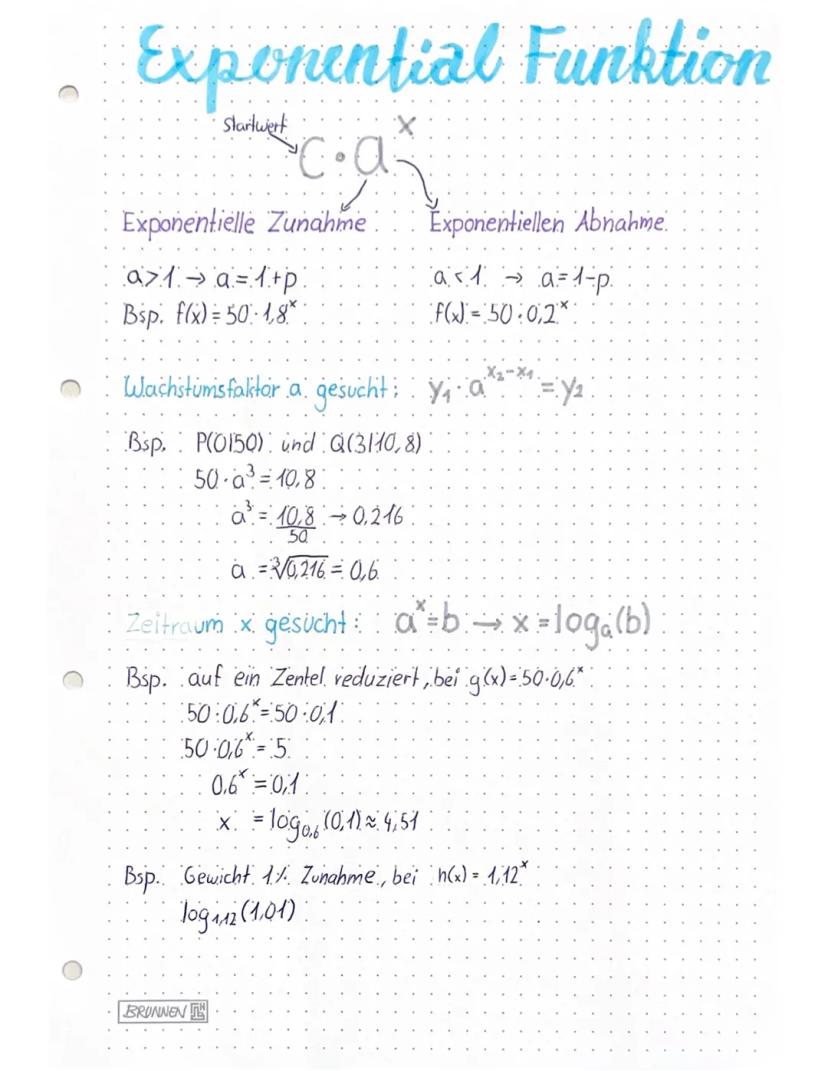 Exponential Funktion
Startwert
C · a^x
Exponentielle Zunahme
Exponentiellen Abnahme
a > 1 → a = 1+p
a < 1 → a = 1-p
Bsp. f(x) = 50 · 1,8^x
f(x) = 50 · 0,2^x
Wachstumsfaktor a gesucht: y₁ · a^(x₂-x₁) = y₂
Bsp. P(0|50) und Q(3|10,8)
50 · a³ = 10,8
a³ = 10,8/50 → 0,216
a = ³√0,216 = 0,6
Zeitraum x gesucht: a^x = b → x = logₐ(b)
Bsp. auf ein Zentel reduziert, bei g(x) = 50 · 0,6^x
50 · 0,6^x = 50 · 0,1
50 · 0,6^x = 5
0,6^x = 0,1
x = log₀,₆ (0,1) ≈ 4,51
Bsp. Gewicht 1% Zunahme, bei h(x) = 1,12^x
log₁,₁₂ (1,01)
BRUNNEN